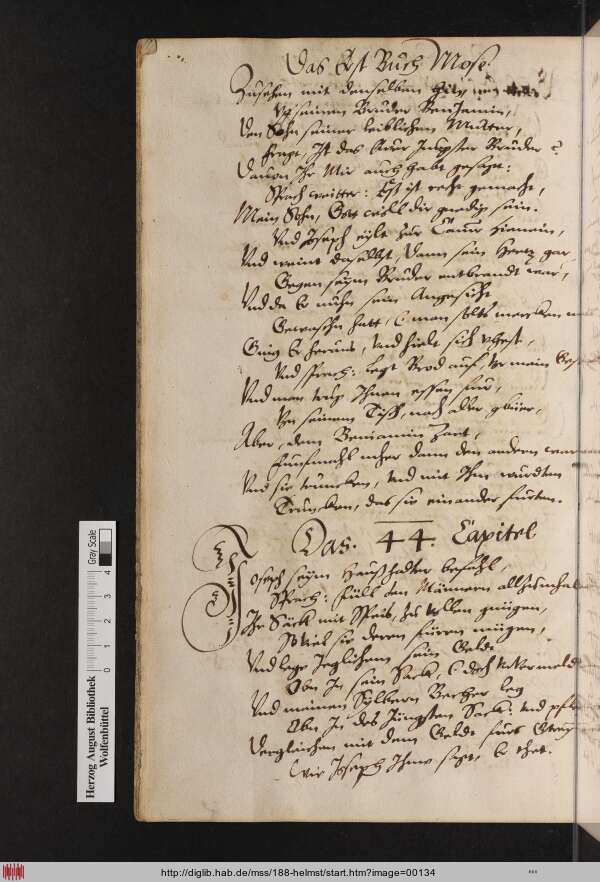 Das Erst Buch Mose.
Zusehen mit denselben
Vf seinen Bruder BenJamin,
Den Sohn seiner leiblichen Mutter,
fragt, Ist das Eur Jungster Bruder?
Dauon Ihr Mir auch habt gesagt:
Sprach weitter: Ist recht gemacht,
Mein Sohn, Gott will dir gnedig sein.
Vnd Joseph eylt zur Camr hienein,
Vnd weint daselbst, dann sein Hertz gar
Gegen seym Bruder entbrandt war,
Vnd da Er nuhn sein Angesicht
Gewaschn hatt, man solts mercken
Ging Er heruus, Vnd hielt sich vhest,
Vnd sprach: legt Brod auf, Ir mein
Vnd man trug Ihnen essen für,
Von seinem Tisch, nach aller gbür,
Aber, dem Beniamin Zart,
fünfmahl mher dann den andern war
Vnd sie truncken, vnd mit Ihm wurdten
Truncken, das sie einander
Das. 44. Capitel
Joseph seym Haußhalter befahl,
Sprach: füll den Männern allzumahl
Ihr Säck mit Speis, zu vollen gnügen,
So viel sie deren füren mügen,
Vnd lege Jeglichem sein Geldt
Obn In sein Sack, doch
Vnd meinen Sylbern Becher leg
Obn In des Jüngsten Sack: vnd
Dergleichen mit dem Geldt fürs
Wie Joseph Ihm sagt, Er thet.
Gray Scale
0 1 2 3 4
Herzog August Bibliothek
Wolfenbüttel
http://diglib.hab.de/mss/188-helmst/start.htm?image=00134